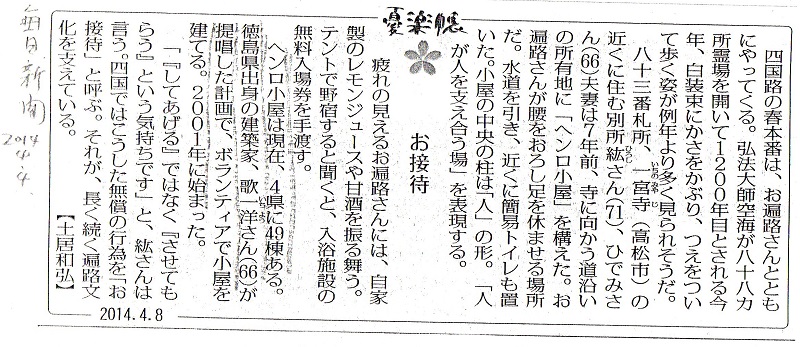 優楽帳
お接待
四国路の春本番は、お遍路さんととも
にやってくる。弘法大師空海が八十八カ
所霊場を開いて1200年目とされる今
年、白装束にかさをかぶり、つえをつい
て歩く姿が例年より多く見られそうだ。
八十三番札所、一宮寺(高松市)の
近くに住む別所紘さん(71)、ひでみさ
ん(66)夫妻は7年前、寺に向かう道沿い
の所有地に「ヘンロ小屋」を構えた。お
遍路さんが腰をおろし足を休ませる場所
だ。水道を引き、近くに簡易トイレも置
いた。小屋の中央の柱は「人」の形。「人
が人を支え合う場」を表現する。
疲れの見えるお遍路さんには、自家
製のレモンジュースや甘酒を振る舞う。
テントで野宿すると聞くと、入浴施設の
無料入場券を手渡す。
ヘンロ小屋は現在、4県に49棟ある。
徳島県出身の建築家、歌一洋さん(66)が
提唱した計画で、ボランティアで小屋を
建てる。2001年に始まった。
「『してあげる』ではなく『させても
らう』という気持ちです」と、紘さんは
言う。四国ではこうした無償の行為を「お
接待」と呼ぶ。それが、長く続く遍路文
化を支えている。
【土居和弘】
2014.4.8
毎日新聞
2014.4.4.